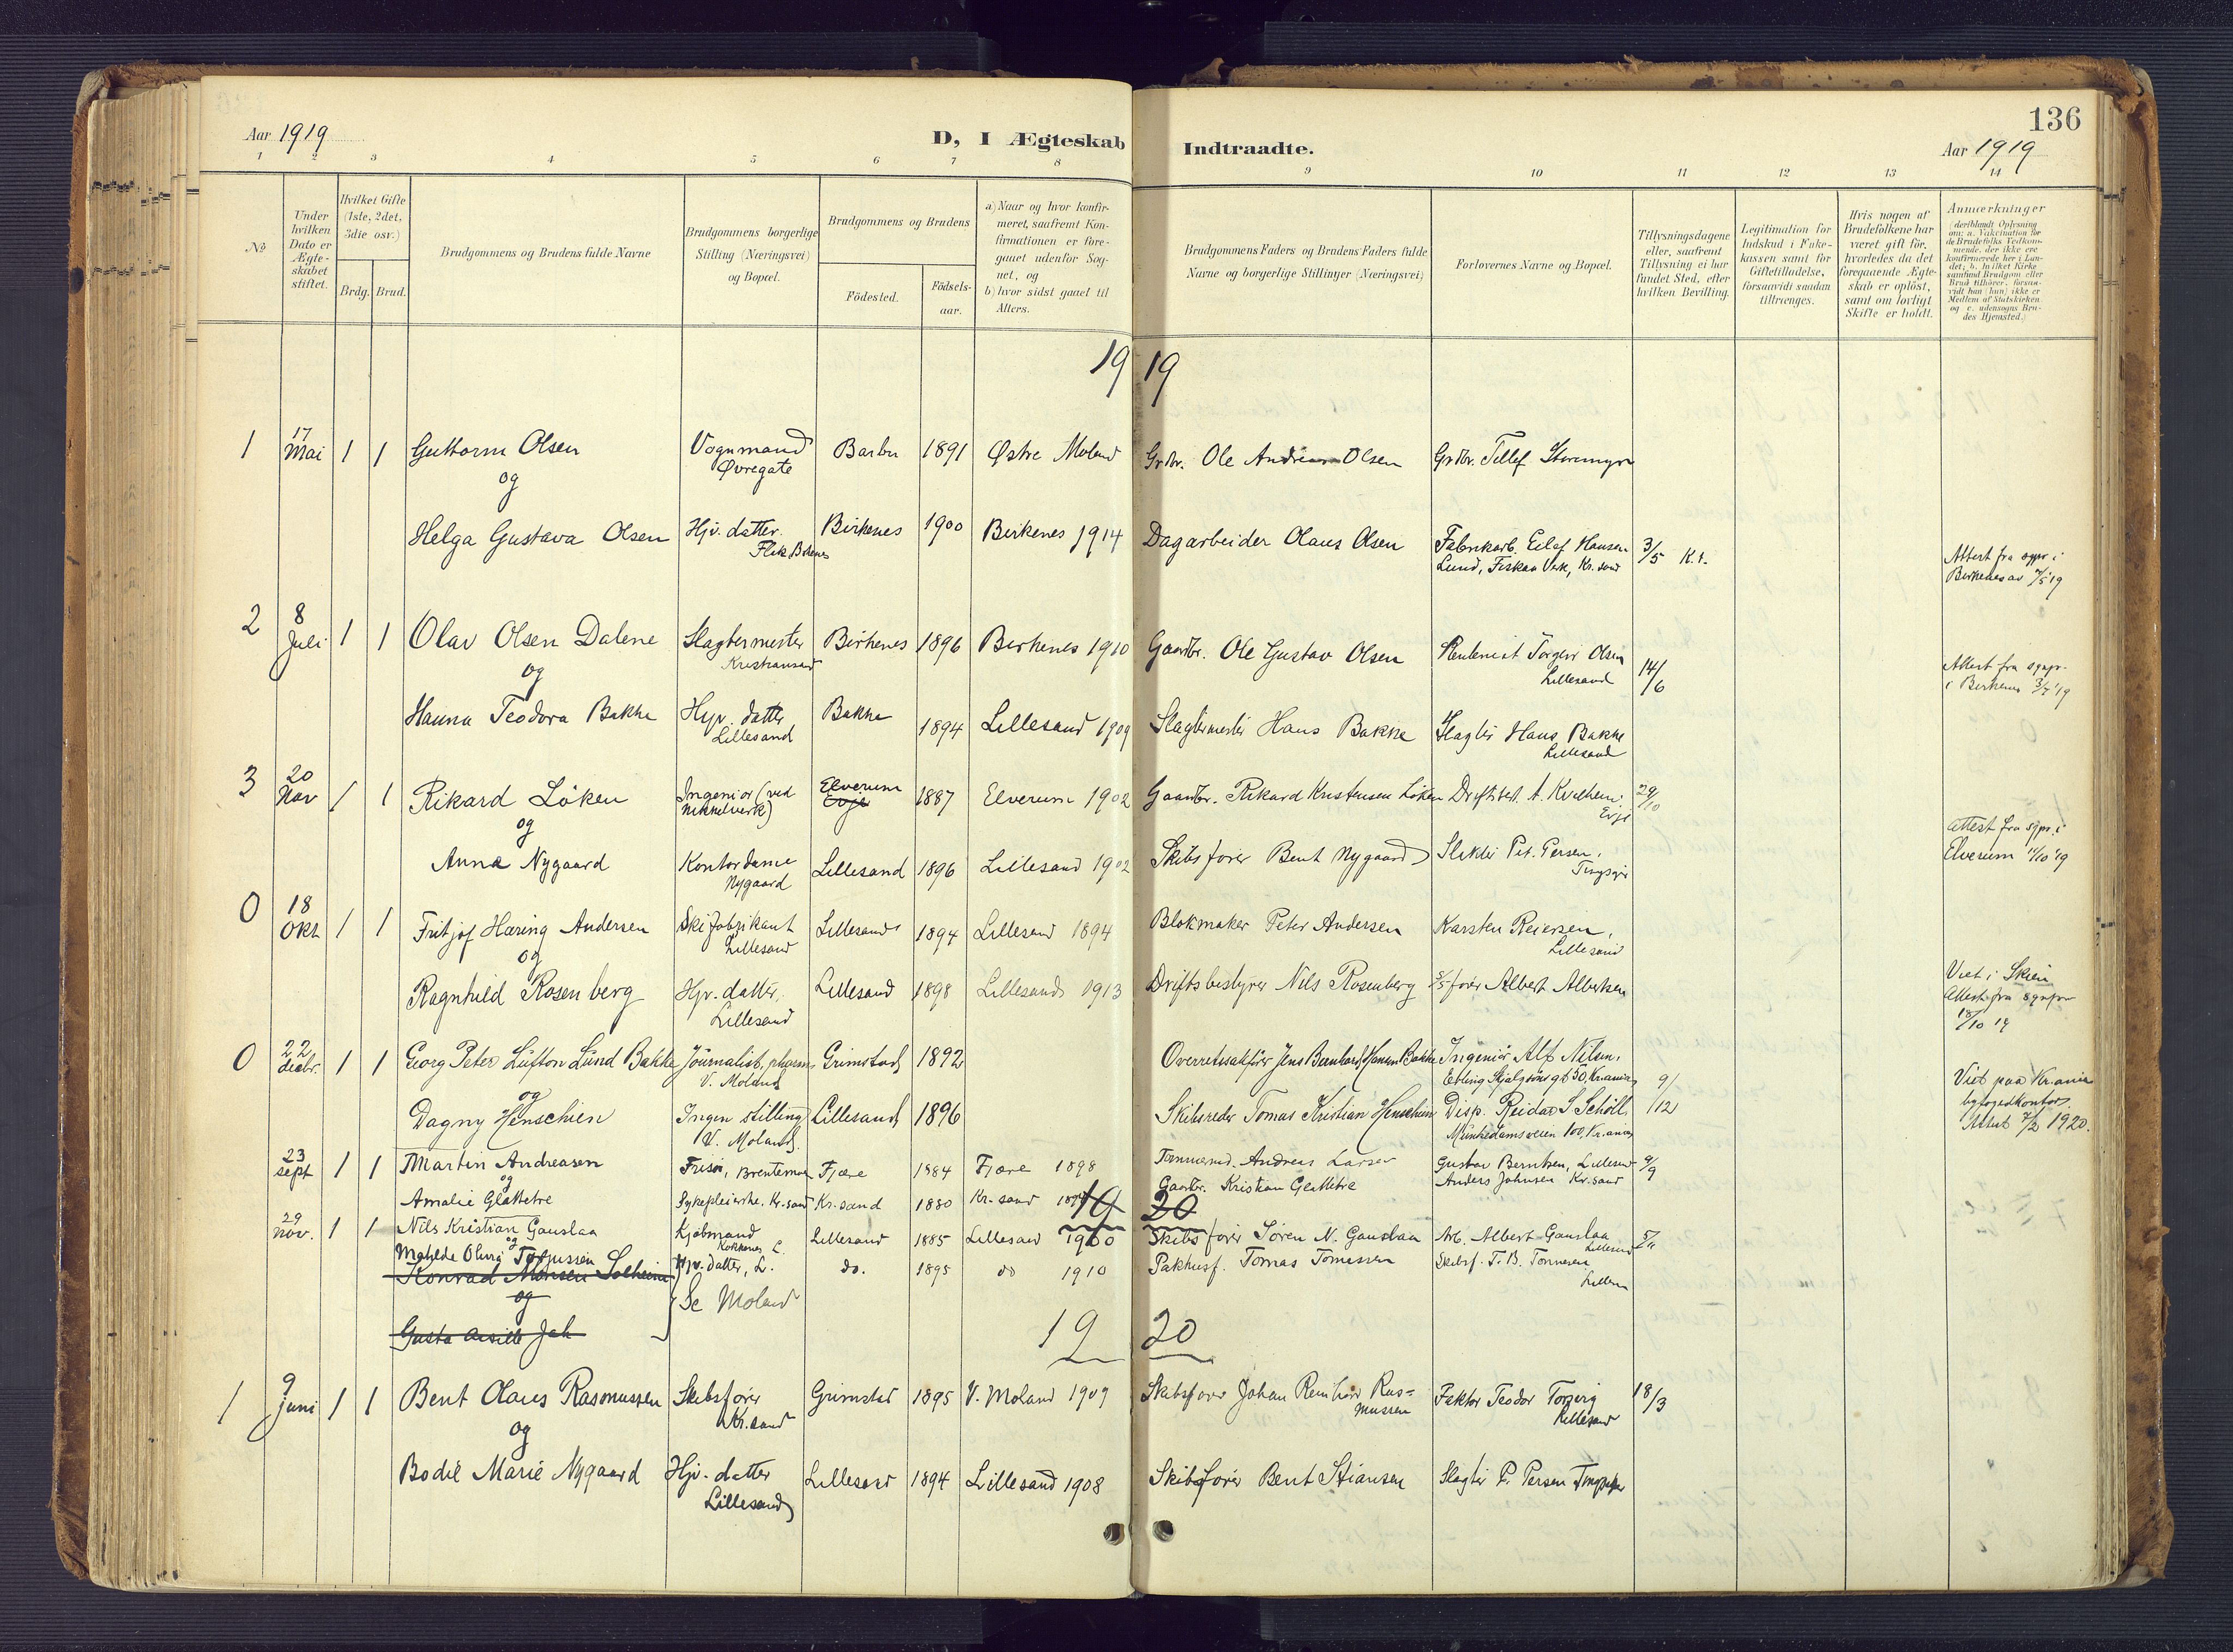 136
Aar 1919
D, I Ægteskab Indtraadte.
Aar 1919
1 2 3 4 5 6 7 8 9 10 11 12 13 14
No
Under hvilken Dato er Ægteskabet stiftet.
Hvilket Gifte (1ste, 2det, 3die osv.)
Brdg. Brud.
Brudgommens og Brudens fulde Navne
Brudgommens borgerlige Stilling (Næringsvei) og Bopæl.
Brudgommens og Brudens
Födested.
Födsels-aar.
a) Naar og hvor konfirmeret, saafremt Konfirmationen er foregaaet udenfor Sognet, og
b) hvor sidst gaaet til Alters.
Brudgommens Faders og Brudens Faders fulde Navne og borgerlige Stillinger (Næringsvei)
Forlovernes Navne og Bopæl.
Tillysningsdagene eller, saafremt Tillysning ei har fundet Sted, efter hvilken Bevilling.
Legitimation for Indskud i Enkekassen samt for Giftetilladelse, forsaavidt saadan tiltrænges.
Hvis nogen af Brudefolkene har været gift för, hvorledes da det foregaaende Ægteskab er oplöst, samt om lovligt Skifte er holdt.
Anmærkninger (deriblandt Oplysning om: a. Vakcination for de Brudefolks Vedkommende, der ikke ere konfirmerede her i Landet; b. hvilket Kirkesamfund Brudgom eller Brud tilhörer, forsaavidt han (hun) ikke er Medlem af Statskirken og c. udensogns Brudes Hjemsted.)
19 19
1 17 Mai 1 1 Guttorm Olsen Vognmand Øvregate Barbu 1891 Østre Moland Grdbr. Ole Andreas Olsen Grdbr. Tellef Storemyr
og
Helga Gustava Olsen Hjv. datter Birkenes 1900 Birkenes 1914 Dagarbeider Olaus Olsen Fabrikarb. Eilef Hansen Lund, Fiskaa Verk, Kr.sand 3/5 K.t. Attest fra sgpr. i Birkenes av
2 8 Juli 1 1 Olav Olsen Dalene Slagtermester Kristiansand Birkenes 1896 Birkenes 1910 Gaardbr. Ole Gustav Olsen Olsen Lillesand 14/6 Attest fra sgpr. i Birkenes
og
Hanna Teodora Bakke Hjv. datter Lillesand Bakke 1894 Lillesand 1909 Slagtermester Hans Bakke Slagter Hans Bakke Lillesand
3 20 Nov 1 1 Rikard Löken Ingeniör (ved Nikkelverk) Elverum Evje 1887 Elverum 1902 Gaardbr. Rikard Kristensen Löken Driftsbest. A. Kvelheim Evje 29/10
og
Anna Nygaard Kontordame Nygaard Lillesand 1896 Lillesand 1902 Skibsförer Bent Nygaard Pet. Persen, Attest fra sgpr. i Elverum
0 18 Okt 1 1 Fritjof Hæring Andersen Skifabrikant Lillesand Lillesand 1894 Lillesand 1894 Blokmaker Peter Andersen Karsten Reiersen, Lillesand
og
Ragnhild Rosenberg Hjv. datter, Lillesand Lillesand 1898 Lillesand 1913 Driftsbestyrer Nils Rosenberg S/S förer Albert Albertsen Viet i Skien Attest fra sgnpr 18/10 19
0 22 decbr. 1 1 Georg Peter Lüfton Lund Bakke Journalist, V. Moland Grimstad 1892 Overretssakförer Jens Bernhard Hansen Bakke Ingeniör Alf Nilsen, Kr.ania 9/12 Viet paa Kr.ania byfogedkontor. Attest 7/2 1920.
og
Dagny Henschien Ingen stilling V. Moland Lillesand 1896 Skibsreder Tomas Kristian Henschien Disp. Reidar S. Schöll Munkedamsveien 100, Kr.ania
23 sept 1 1 Martin Andreasen Frisör, Fjære 1884 Fjære 1898 Andreas Larsen Gustav Berntsen, Lillesand 9/9
og
Amalie Glattetre Sykepleierske. Kr.sand Kr.sand 1880 Kr.sand Gaardbr. Kristian Glattetre Anders Johnsen Kr.sand
19 20
29 nov. 1 1 Nils Kristian Gauslaa Kjöbmand Lillesand 1885 Lillesand 1900 Skibsförer Sören N. Gauslaa Arb. Albert Gauslaa Lillesand
og
Matilde Olivia Torjussen Hjv. datter, L. do. 1895 do 1910 Pakhusf. Tomas Tomassen Skibsf. T. B. Tönnesen Lillesand
Konrad Monsen Solheim
og
Gusta Jah
Se Moland
19 20
1 9 juni 1 1 Bent Olaus Rasmussen Skibsförer Kr.sand Grimstad 1895 V. Moland 1909 Skibsförer Johan Reinhard Rasmussen Faktor Teodor Lillesand 18/3
og
Bodil Marie Nygaard Hjv. datter Lillesand Lillesand 1894 Lillesand 1908 Skibsförer Bent Stiansen Slagter P. Persen